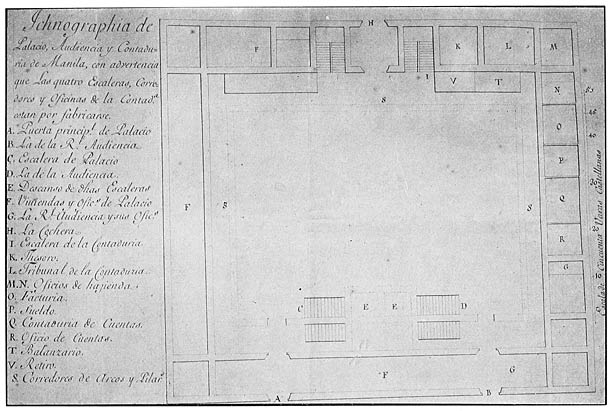 Ichnographia de
Palacio, Audiencia y Contadu-
ria de Manila, con advertencia
que Las quatro Escaleras, Corre-
dores y Oficinas de la Contadª
estan por fabricarse.
A. Puerta principl. de Palacio
B. La de la Rl. Audiencia
C. Escalera de Palacio
D. La de la Audiencia.
E. Descanso de dhas Escaleras
F. Viviendas y Ofics. de Palacio
G. La Rl. Audiencia y sus Ofics.
H. La Cochera
I. Escalera de la Contaduria.
K. Thesoro.
L. Tribunal de la Contaduria.
M.N. Oficios de hazienda.
O. Facturia.
P. Sueldo.
Q. Contaduria de Cuentas.
R. Oficio de Cuentas.
T. Balanzario.
V. Retiro.
S. Corredores de Arcos y Pilars.
H
F
K
L
M
I
V
T
S
N
O
P
Q
R
G
F
S
S
C
E
E
D
F
G
A
B
Escala de Cincuenta Varas Castellanas